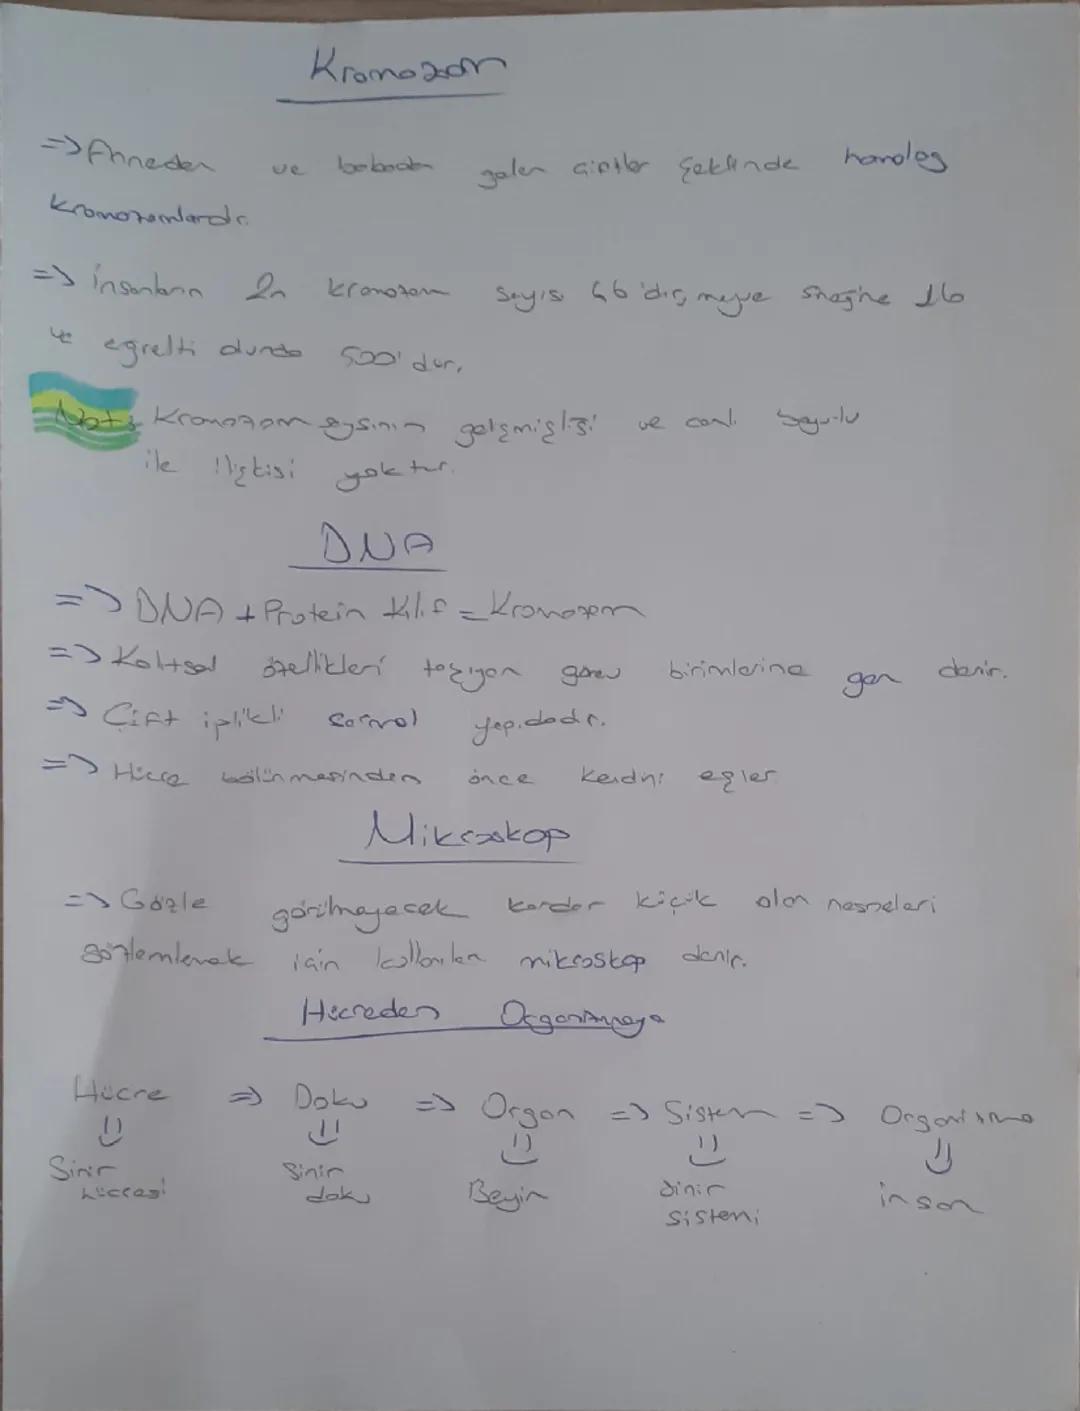 Kromozom
=> Anneden ve babadan gelen çiftler şeklinde homolog
kromozomlardır.
=> insanların 2n kromozom sayısı 46'dır, meyve sineğine 16
ve eğrelti otunda 500'dür.
Not: Kromozom sysının gelişmişliği ve canlı boyutu
ile ilişkisi yoktur.
DNA
=> DNA + Protein Kılıf = Kromozom
=> Kalıtsal özellikleri taşıyan görev birimlerine gen denir.
=> Çift iplikli sarmal yapıdadır.
=> Hücre bölünmesinden önce kendni eşler.
Mikroskop
=> Gözle görülmeyecek kardar küçük olan nesneleri
gözlemlemek için kullanılan mikroskop denir.
Hücreden Organizmaya
Hücre => Doku => Organ => Sistem => Organizma
Sinir hücresi Sinir doku Beyin Sinir sistemi insan